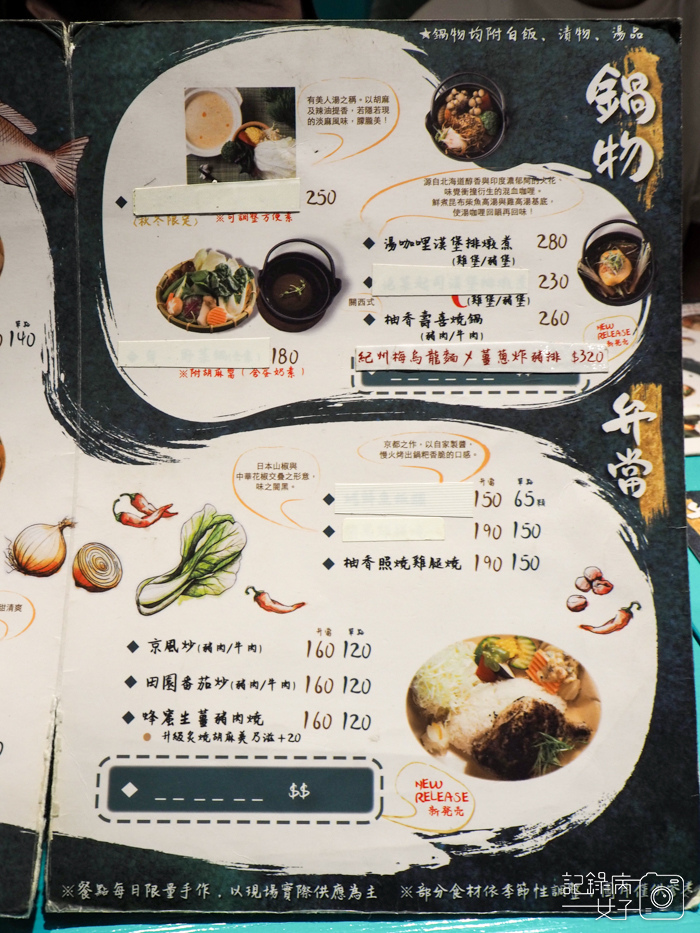 ★鍋物均附白飯、漬物、湯品
鍋物
有美人湯之稱。以胡麻
及辣油提香，若隱若現
的淡麻風味，膵臘美！
250
(秋冬限定) ※可調整方便素
源自北海道醇香與印度濃郁
味覺衝撞衍生的混血咖哩。
鮮煮昆布柴魚高湯與雞高湯基底，
使湯咖哩回韻再回味！
◆ 湯咖哩漢堡排燉煮 280
(雞堡/豬堡)
◆ 230
(雞堡/豬堡)
關西式
◆ 柚香壽喜燒鍋 260
(豬肉/牛肉)
NEW RELEASE/
新發売
紀州梅烏龍麵 〤 薑蔥炸豬排 $320
180
※附胡麻醬(含蛋奶素)
單點
140
弁當
京都之作，以自家製醬，
慢火烤出鍋粑香脆的口感。
日本山椒與
中華花椒交疊之形意，
味之闇黑。
弁當 單點
◆ 150 65顆
◆ 190 150
◆ 柚香照燒雞腿燒 190 150
弁當 單點
◆ 京風炒(豬肉/牛肉) 160 120
◆ 田園番茄炒(豬肉/牛肉) 160 120
◆ 蜂蜜生薑豬肉燒 160 120
● 升級炙燒胡麻美乃滋+20
◆ _ _ _ _ _ _ $$
NEW
RELEASE
新発売
甜清爽
※餐點每日限量手作，以現場實際供應為主 ※部分食材依季節性調整
記錄病
女子